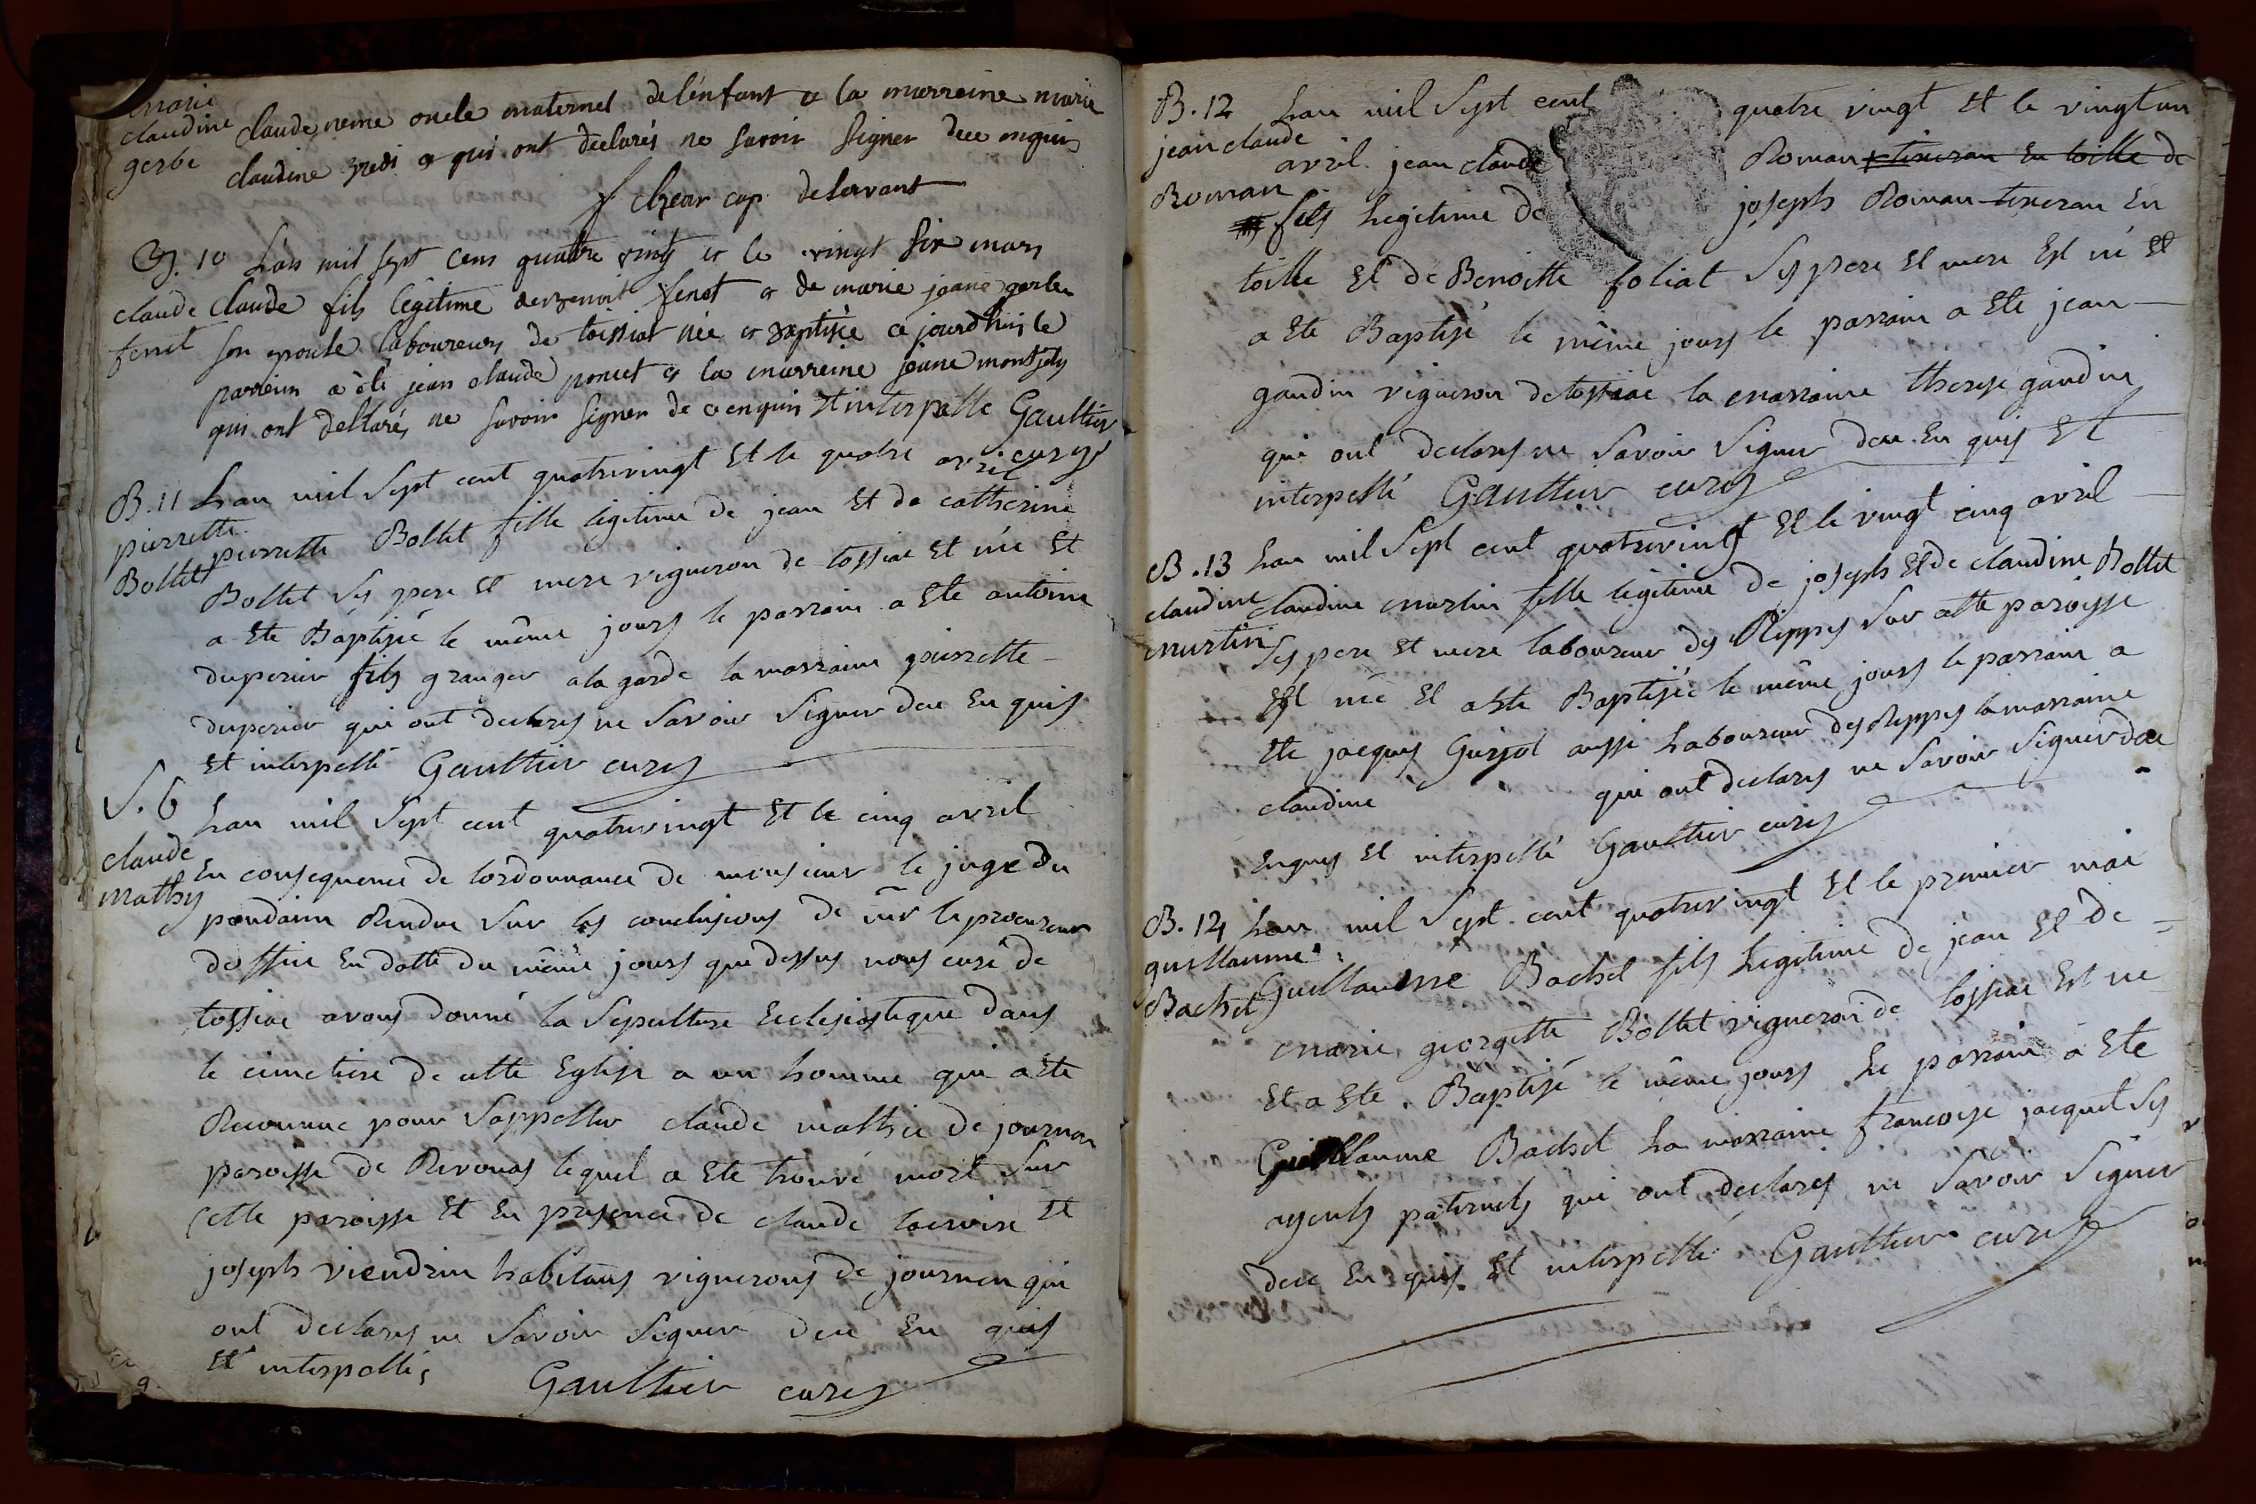 marie
claudine
gerbe
claude neme oncle maternel de l'enfant et la marreine marie
claudine gredi et qui ont declarés ne savoir signer dece enquis
f chear cap. deservant
B. 10 L'an mil sept cens quatre vingts et le vingt six mars
claude
ferret
claude fils légitime de benoit feret et de marie jeane gerbe
son epouse laboureurs de toissiat née et baptisée ce jourdhuis le
parrein a été jean claude poncet et la marreine jeane montjoly
qui ont dellarés ne savoir signer de ce enquis et interpelle Gaulthier
curé
B. 11 Lan mil Sept cent quatrevingt Et le quatre avril
pierrette
Bollet
pierrette Bollet fille légitime de jean Et de catherine
Bollet Ses pere Et mere vigneron de tossiac Et née Et
a Ete Baptisée le même jours le parrain a Ete antoine
duperier fils granger a la garde la marraine pierrette
duperier qui ont declares ne Savoir Signer dece En quis
Et interpellé Gaulthier curé
S. 6 Lan mil Sept cent quatrevingt Et le cinq avril
claude
mathy
En consequence de lordonnance de monsieur le juge du
pondain Rendue Sur les conclusions de mr le procureur
doffice En datte du même jours que dessus nous curé de
tossiac avons donné la Sepulture Eclesiastique dans
le cimetiere de cette Eglise a un homme qui a Ete
Reconnue pour Sappeller claude mathie de journan
paroisse de Revonas lequel a Ete trouvé mort Sur
Cette paroisse Et En presence de claude lacroix Et
joseph viendrin habitans vignerons de journan qui
ont declares ne Savoir Signer dece En quis
Et interpellés Gaulthier curé
B. 12 Lan mil Sept cent quatre vingt Et le vingt un
jean claude
Roman
avril jean claude Roman tixeran En toille de
fils Legitime de joseph Roman tixeran En
toille Et de Benoitte foliat Ses pere Et mere Est né Et
a Ete Baptisé le même jours le parrain a Ete jean
gaudin vigneron de tossiac la marraine therese gaudin
qui ont declares ne Savoir Signer dece En quis Et
interpellé Gaulthier curé
B. 13 Lan mil Sept cent quatrevingt Et le vingt cinq avril
claudine
martin
claudine martin fille legitime de joseph Et de claudine Bollet
Ses pere Et mere laboureur des Rippes Sur cette paroisse
Est née Et a Ete Baptisée le même jours le parrain a
Ete jacques Guyot aussi Laboureur des Rippes la marraine
claudine qui ont declares ne Savoir Signer dece
Enquis Et interpellé Gaulthier curé
B. 14 Lan mil Sept cent quatrevingt Et le premier mai
guillaume
Bachet
Guillaume Bachet fils Legitime de jean Et de
marie georgette Bollet vigneron de tossiac Est né
Et a Ete Baptisé le même jours Le parrain a Ete
Guillaume Bachet La marraine francoise jacquet Ses
ayeuls paternels qui ont declares ne Savoir Signer
dece En quis Et interpellé Gaulthier curé